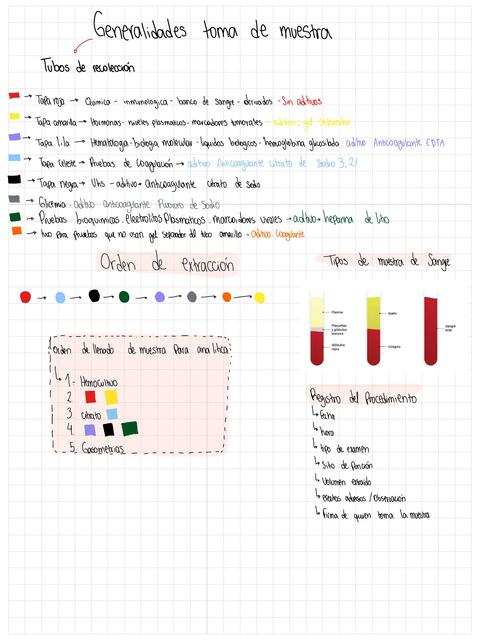 Generalidades toma de muestra
Tubos de recolección
→ Tapa roja → Química - inmunologica - banco de sangre - derivados - Sin aditivos
→ Tapa amarilla → Hormonas - niveles plasmaticos - marcadores tumorales - aditivo: gel separador
→ Tapa lila → Hematologia - biologia molecular - liquidos biologicos - hemoglobina glucosilada aditivo Anticoagulante EDTA
→ Tapa celeste → Pruebas de Coagulación → aditivo Anticoagulante citrato de Sodio 3,2%
→ Tapa negra → Vhs - aditivo → Anticoagulante citrato de sodio
→ Glicemia - aditivo Anticoagulante Fluoruro de Sodio
→ Pruebas bioquimicas, electrolitos Plasmaticos, marcadores virales → aditivo → heparina de litio
→ tubo para pruebas que no usan gel separador del tubo amarillo → aditivo Coagulante
Orden de extracción
Tipos de muestra de Sangre
Plasma
Plaquetas y glóbulos blancos
Glóbulos rojos
Suero
Coágulo
Sangre total
orden de llenado de muestra para analitica
1 - Hemocultivo
2
3 citrato
4.
5. Gasometrias
Registro del Procedimiento
↳ Fecha
↳ hora
↳ tipo de examen
↳ Sitio de Punción
↳ Volumen extraido
↳ eventos adversos / Observación
↳ Firma de quien toma la muestra